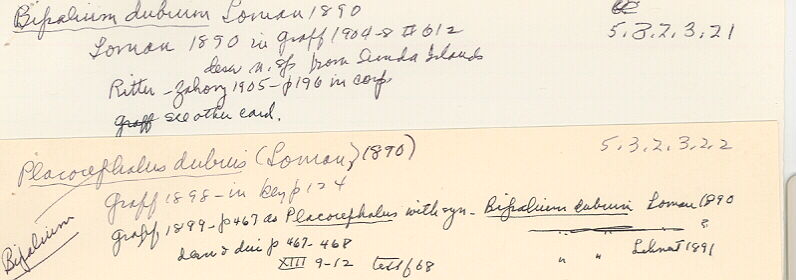 Bipalium dubium Loman 1890
5.3.2.3.21
Loman 1890 in Graff 1904-8 # 612
descr n.sp from Sunda Islands
Ritter-Zahony 1905-p196 in corp.
graff see other card.
5.3.2.3.22
Placocephalus dubius (Loman, 1890)
Graff 1898-in key p 124
Bipalium
Graff 1899-p467 as Placocephalus with syn- Bipalium dubium Loman 1890
" " 1891
descr & dis p 467-468
XIII 9-12 textf 68